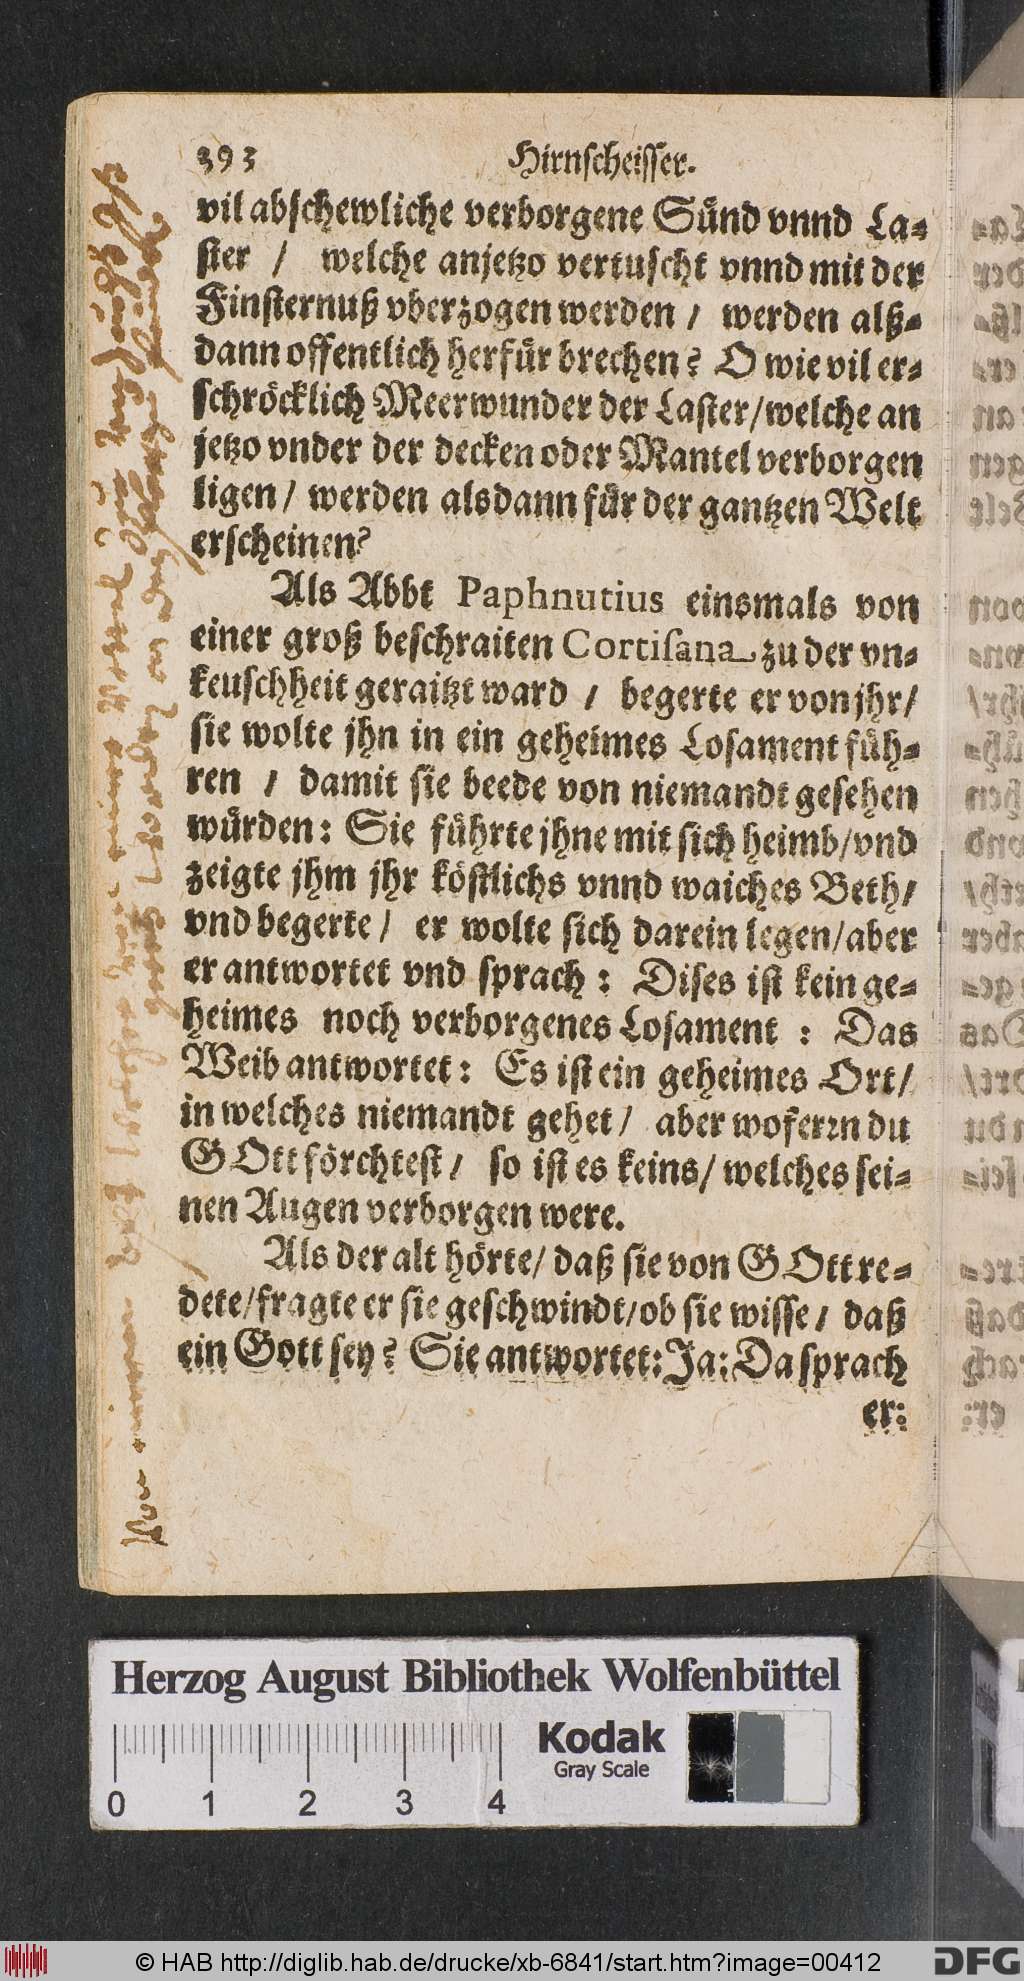 393 Hirnscheisser.
vil abschewliche verborgene Suͤnd vnnd La-
ster / welche anjetzo vertuscht vnnd mit der
Finsternuß vberzogen werden / werden alß-
dann offentlich herfuͤr brechen? O wie vil er-
schroͤcklich Meerwunder der Laster/welche an
jetzo vnder der decken oder Mantel verborgen
ligen / werden alsdann fuͤr der gantzen Welt
erscheinen?
Als Abbt Paphnutius einsmals von
einer groß beschraiten Cortisana zu der vn-
keuschheit geraitzt ward / begerte er von jhr/
sie wolte jhn in ein geheimes Losament fuͤh-
ren / damit sie beede von niemandt gesehen
wuͤrden: Sie fuͤhrte jhne mit sich heimb/vnd
zeigte jhm jhr koͤstlichs vnnd waiches Beth/
vnd begerte / er wolte sich darein legen/aber
er antwortet vnd sprach: Dises ist kein ge-
heimes noch verborgenes Losament : Das
Weib antwortet: Es ist ein geheimes Ort/
in welches niemandt gehet / aber woferrn du
GOtt foͤrchtest / so ist es keins/ welches sei-
nen Augen verborgen were.
Als der alt hoͤrte/ daß sie von GOtt re-
dete/fragte er sie geschwindt/ob sie wisse / daß
ein Gott sey? Sie antwortet: Ja: Da sprach
er:
Herzog August Bibliothek Wolfenbüttel
Kodak
Gray Scale
0 1 2 3 4
© HAB http://diglib.hab.de/drucke/xb-6841/start.htm?image=00412
DFG